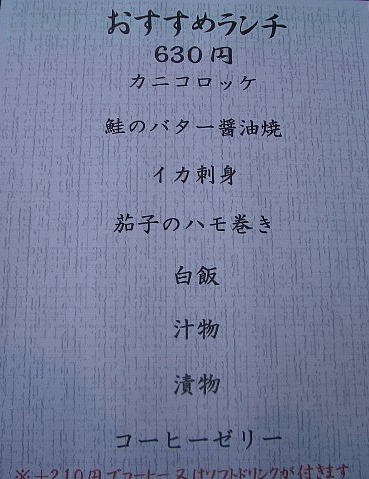 おすすめランチ
630円
カニコロッケ
鮭のバター醤油焼
イカ刺身
茄子のハモ巻き
白飯
汁物
漬物
コーヒーゼリー
※+210円でコーヒー又はソフトドリンクが付きます